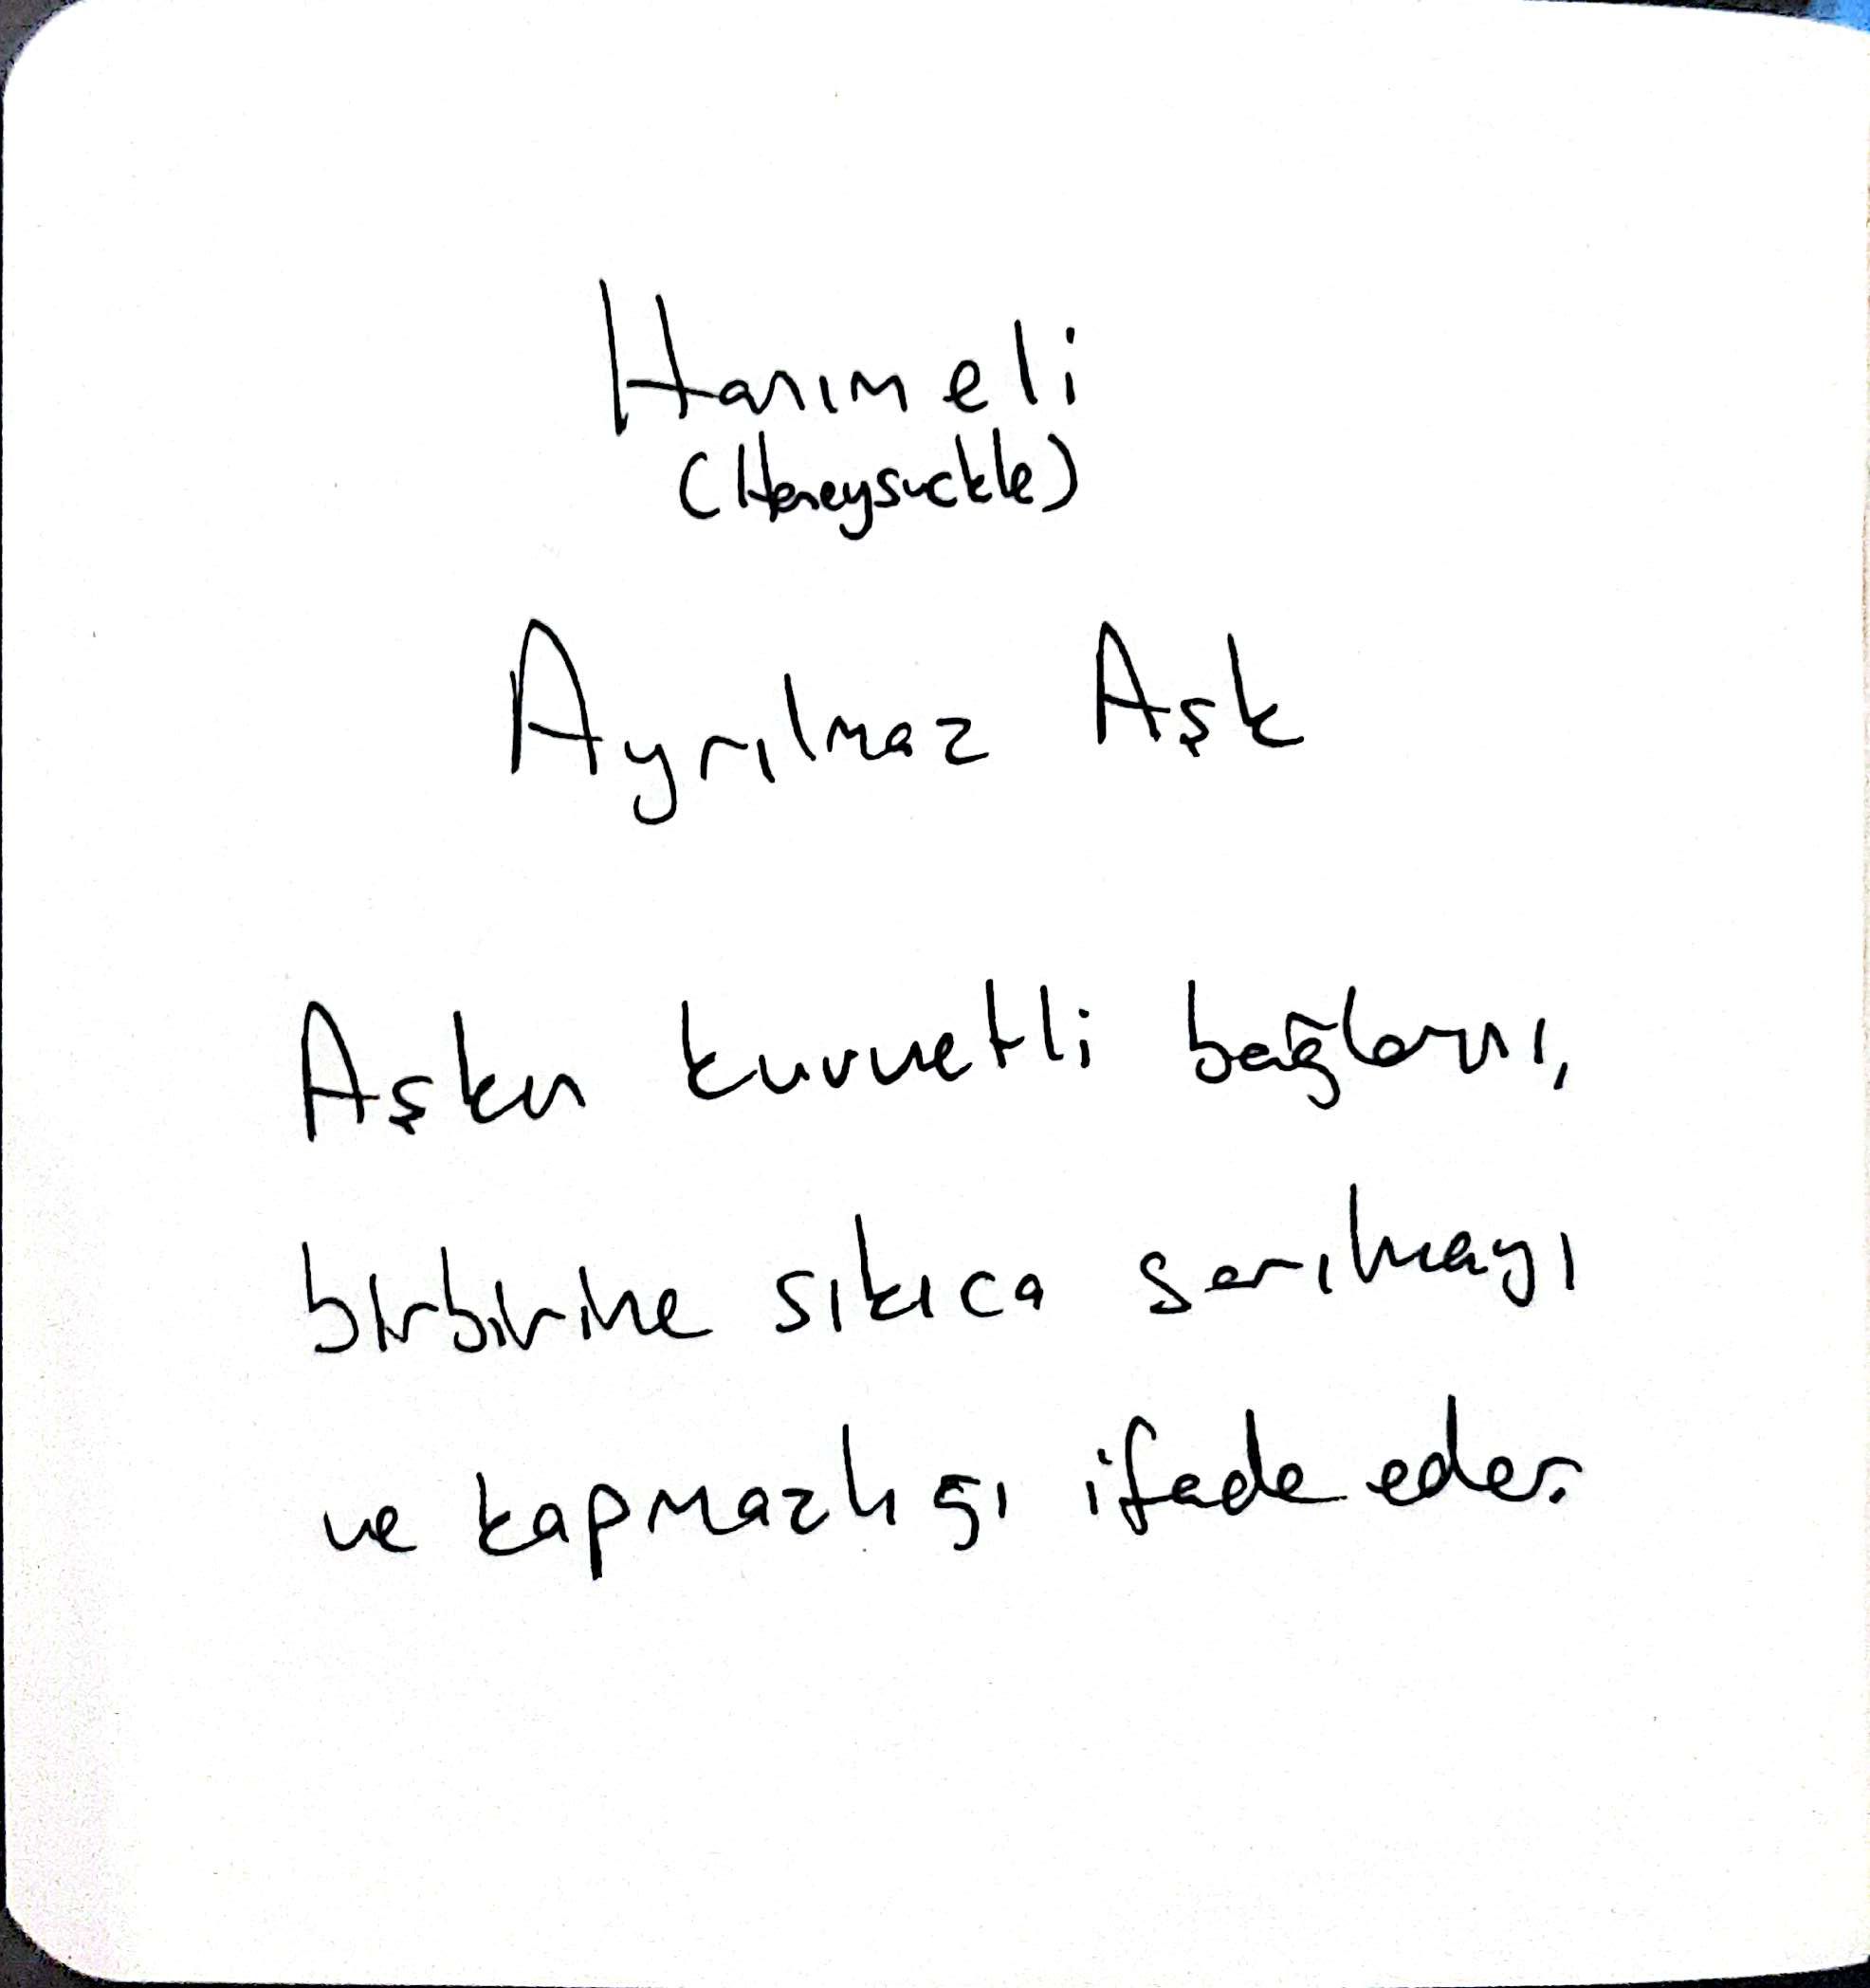 Hanımeli
(Honeysuckle)
Ayrılmaz Aşk
Aşkın kuvvetli bağlarını,
birbirine sıkıca sarılmayı
ve kapmazlığı ifade eder.